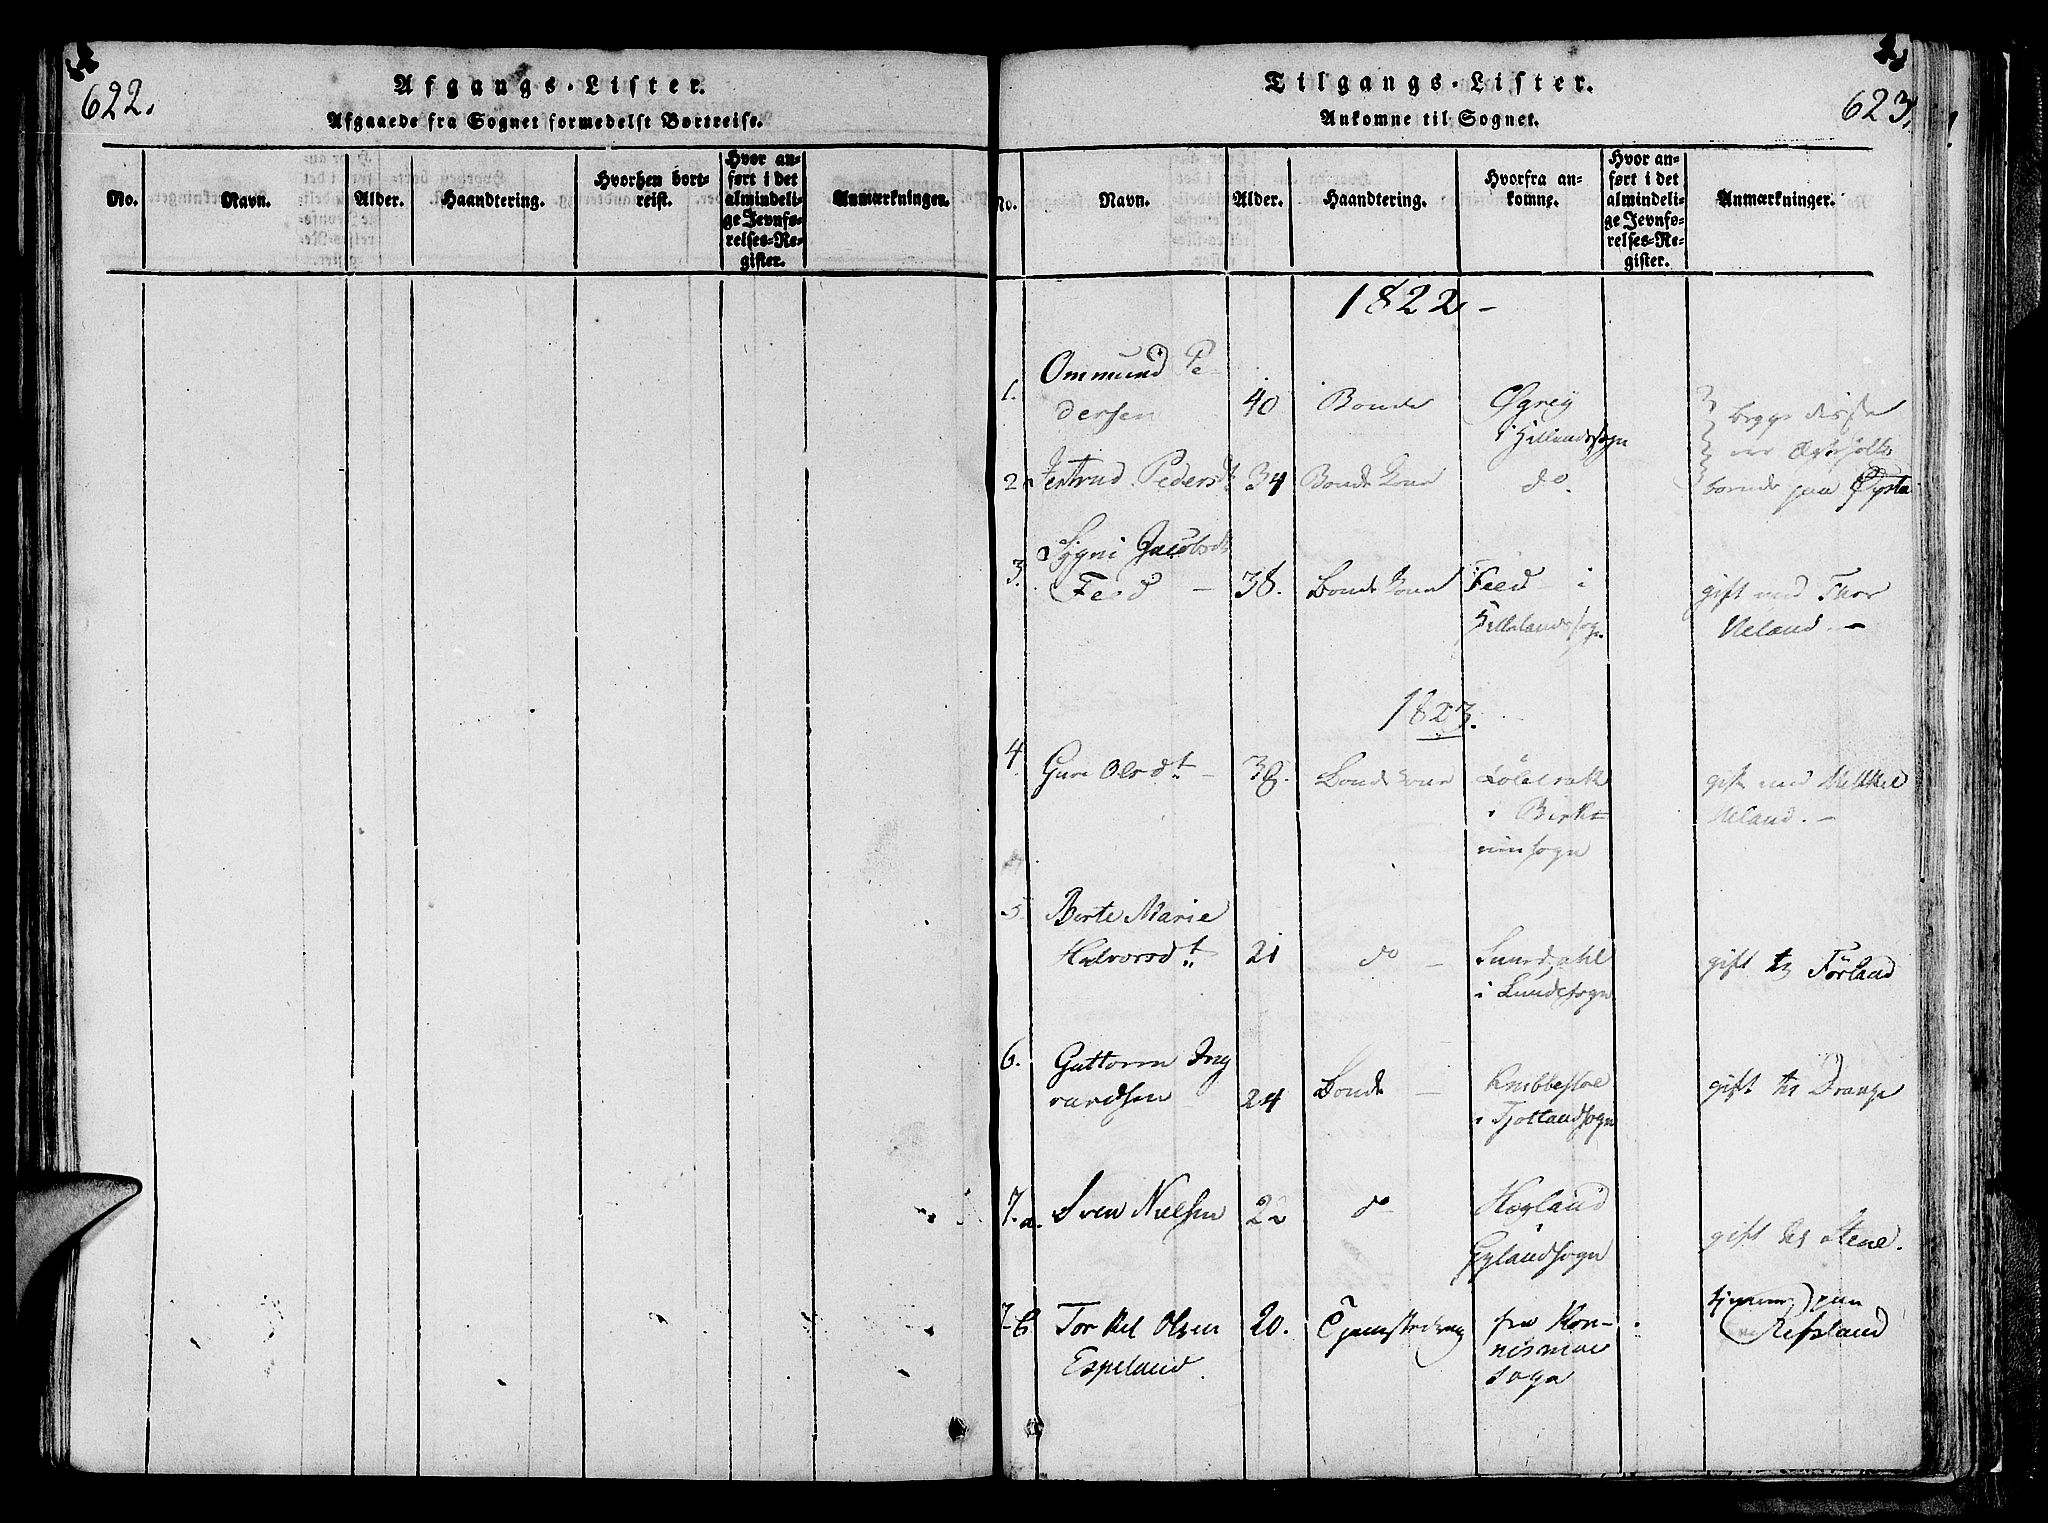 622.
Afgangs-Lister.
Afgaaede fra Sognet formedelst Bortreise.
No.
Navn.
Alder.
Haandtering.
Hvorhen bort-
reist.
Hvor an-
ført i det
almindeli-
ge Jevnfø-
relses-Re-
gister.
Anmærkninger.
Tilgangs-Lister.
623.
Ankomne til Sognet.
No.
Navn.
Alder.
Haandtering.
Hvorfra an-
komne.
Hvor an-
ført i det
almindeli-
ge Jevnfø-
relses-Re-
gister.
Anmærkninger.
1822 -
1. Ommund Pe
dersen 40 Bonde Øgrey
i Hillandssogn
begge disse
bornde paa
2. Jertrud Pedersd. 34 Bonde Kone do.
3. Sygni Jacobsdt
Feed - 38. Bonde Kone Feed i
Hillelandssogn
gift med Thor
Meland. -
1823.
4. Guri Olsdt - 38. Bonde Kone
i Birke-
rimsogn
gift med Mikkel
Meland. -
5. Berte Marie
Halvorsdt 21 do - Suursdahl
i Lundesogn
gift til Förland
6. Guttorm Ing
vardsen 24 Bonde - Knibbestoe
i Fjotlandsogn
gift til Drange
7. a. Sven Nielsen 22 do Høyland
Gylandsogn
gift til Stene.
7-b Torkel Olsen
Espeland. 20. Tjenestedreng fra Kon-
nismoe
Sogn
tjenner paa
Refsland